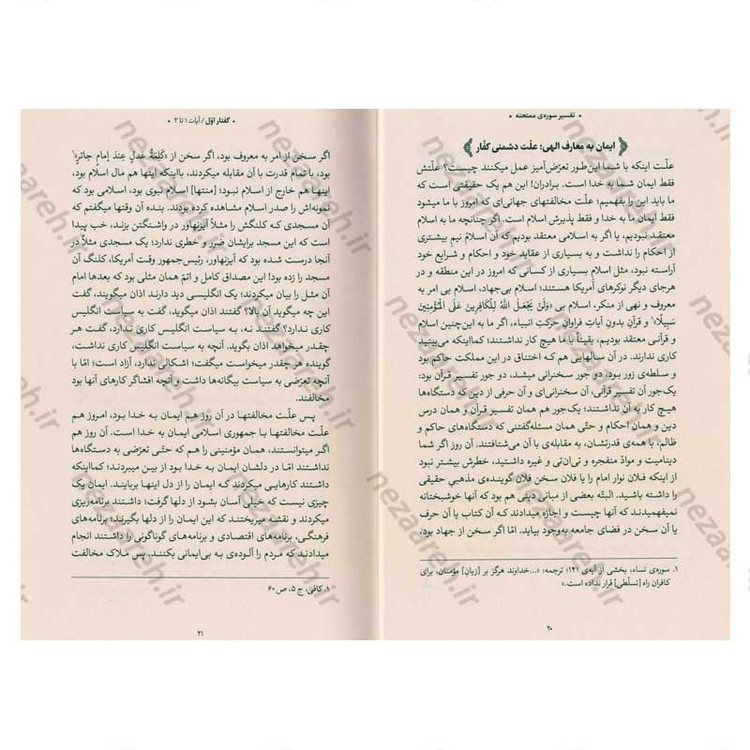 • تفسیر سوره‌ی ممتحنه
ایمان به معارف الهی؛ علّت دشمنی کفّار
علّت اینکه با شما این‌طور تعرّض‌آمیز عمل میکنند چیست؟ علّتش
فقط ایمان شما به خدا است. برادران! این هم یک حقیقتی است که
ما باید این را بفهمیم؛ علّت مخالفتهای جهانی‌ای که امروز با ما میشود
فقط ایمان ما به خدا و فقط پذیرش اسلام است. اگر چنانچه ما به اسلام
معتقد نبودیم، یا اگر به اسلامی معتقد بودیم که آن اسلام نیم بیشتری
از احکام را نداشت و به بسیاری از عقاید خود و احکام و شرایع خود
آراسته نبود، مثل اسلام بسیاری از کسانی که امروز در این منطقه و در
هرجای دیگر نوکرهای آمریکا هستند؛ اسلام بی‌جهاد، اسلام بی امر به
معروف و نهی از منکر، اسلام بی «وَلَن يَجعَلَ اللَّهُ لِلكَافِرِينَ عَلَى المُؤمِنِينَ
سَبِيلًا»۱ و قرآنِ بدونِ آیاتِ فراوانِ حرکتِ انبیاء، اگر ما به این‌چنین اسلام
و قرآنی معتقد بودیم، یقیناً با ما هیچ کار نداشتند؛ کمااینکه می‌بینید
کاری ندارند. در آن سالهایی هم که اختناق در این مملکت حاکم بود
و سلطه‌ی زور بود، دو جور سخنرانی میشد، دو جور تفسیر قرآن بود؛
یک‌جور آن تفسیر قرآنی، آن سخنرانی‌ای و آن حرفی از دین که دستگاه‌ها
هیچ کار به آن نداشتند؛ یک‌جور هم همان تفسیر قرآن و همان درس
دین و همان احکام و حتّی همان مسئله‌گفتنی که دستگاه‌های حاکم و
ظالم، با همه‌ی قدرتشان، به مقابله‌ی با آن می‌شتافتند. آن روز اگر شما
دینامیت و موادّ منفجره و تی‌ان‌تی و غیره داشتید، خطرش بیشتر نبود
از اینکه فلان نوار امام را یا فلان سخن فلان گوینده‌ی مذهبیِ حقیقی
را داشته باشید. البتّه بعضی از مبانی دینی هم بود که آنها خوشبختانه
نمیفهمیدند که آنها چیست و اجازه میدادند که آن کتاب یا آن حرف
یا آن سخن در فضای جامعه به‌وجود بیاید. امّا اگر سخن از جهاد بود،
۱. سوره‌ی نساء، بخشی از آیه‌ی ۱۴۱؛ ترجمه: «...خداوند هرگز بر [زیانِ] مؤمنان، برای
کافران راه [تسلّطی] قرار نداده است.»
۲۰
• گفتار اوّل / آیات ۱ تا ۳ •
اگر سخن از امر به معروف بود، اگر سخن از «کَلِمَةُ عَدلٍ عِندَ إمامٍ جائرٍ»۱
بود، با تمام قدرت با آن مقابله میکردند، بااینکه اینها هم مال اسلام بود،
اینها هم خارج از اسلام نبود؛ [منتها] اسلام نبوی بود، اسلامی بود که
نمونه‌اش را صدر اسلام مشاهده کرده بودند. بنده آن وقتها میگفتم که
آن مسجدی که کلنگش را آیزنهاور در واشنگتن بزند، خب پیدا
است که این مسجد برایشان ضرر و خطری ندارد؛ یک مسجدی مثلاً در
آنجا درست شده بود که آیزنهاور، رئیس‌جمهور وقت آمریکا، کلنگ آن
مسجد را زده بود! این مصداق کامل و اتمّ همان مثلی بود که بعدها امام
آن مثل را بیان میکردند؛ یک انگلیسی دید دارند اذان میگویند، گفت
این چه میگوید آن بالا؟ گفتند اذان میگوید، گفت به سیاست انگلیس
کاری ندارد؟ گفتند نه، به سیاست انگلیس کاری ندارد، گفت هر
چقدر میخواهد اذان بگوید. آنچه به سیاست انگلیس کاری نداشت،
گوینده هر چقدر میخواست میگفت؛ اشکالی ندارد، آزاد است؛ امّا با
آنچه تعرّضی به سیاست بیگانه‌ها داشت و آنچه افشاگر کارهای آنها بود
مخالفند.
پس علّت مخالفتها در آن روز هم ایمان به خدا بود، امروز هم
علّت مخالفتها با جمهوری اسلامی ایمان به خدا است. آن روز هم
اگر میتوانستند، همان مؤمنینی را هم که حتّی تعرّضی به دستگاه‌ها
نداشتند امّا در دلشان ایمان به خدا بود از بین میبردند؛ کمااینکه
داشتند کارهایی میکردند که ایمان را از دل اینها بربایند. ایمان یک
چیزی نیست که خیلی آسان بشود از دلها گرفت؛ داشتند برنامه‌ریزی
میکردند و نقشه میریختند که این ایمان را از دلها بگیرند؛ برنامه‌های
فرهنگی، برنامه‌های اقتصادی و برنامه‌های گوناگونی را داشتند انجام
میدادند که مردم را آلوده‌ی به بی‌ایمانی بکنند. پس ملاک مخالفت
۱. کافی، ج ۵، ص ۶۰
۲۱
nezaareh.ir